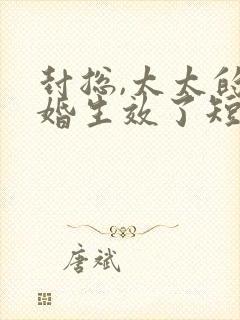 封总,太太的
婚生效了短
唐斌